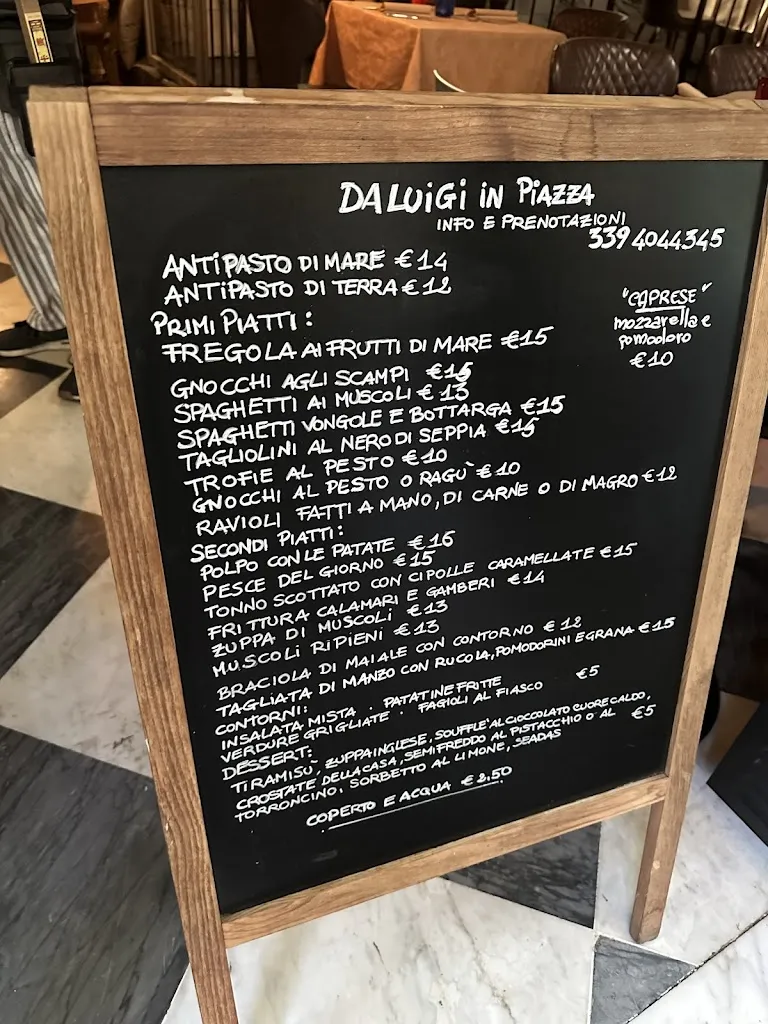 DA LUIGI IN PIAZZA
INFO E PRENOTAZIONI
339 4044345
ANTIPASTO DI MARE €14
ANTIPASTO DI TERRA €12
PRIMI PIATTI:
FREGOLA AI FRUTTI DI MARE €15
"CAPRESE"
mozzarella e
pomodoro
€10
GNOCCHI AGLI SCAMPI
SPAGHETTI AI MUSCOLI €13
SPAGHETTI VONGOLE E BOTTARGA €15
TAGLIOLINI AL NERO DI SEPPIA €15
TROFIE AL PESTO €10
GNOCCHI AL PESTO O RAGÙ €10
RAVIOLI FATTI A MANO, DI CARNE O DI MAGRO €12
SECONDI PIATTI:
POLPO CON LE PATATE €16
PESCE DEL GIORNO €15
TONNO SCOTTATO CON CIPOLLE CARAMELLATE €15
FRITTURA CALAMARI E GAMBERI €14
ZUPPA DI MUSCOLI €13
MUSCOLI RIPIENI €13
BRACIOLA DI MAIALE CON CONTORNO €12
TAGLIATA DI MANZO CON RUCOLA, POMODORINI E GRANA €15
CONTORNI:
INSALATA MISTA · PATATINE FRITTE €5
VERDURE GRIGLIATE · FAGIOLI AL FIASCO
DESSERT:
TIRAMISÙ, ZUPPA INGLESE, SOUFFLÈ AL CIOCCOLATO CUORE CALDO,
CROSTATE DELLA CASA, SEMIFREDDO AL PISTACCHIO O AL €5
TORRONCINO, SORBETTO AL LIMONE, SEADAS
COPERTO E ACQUA €2,50